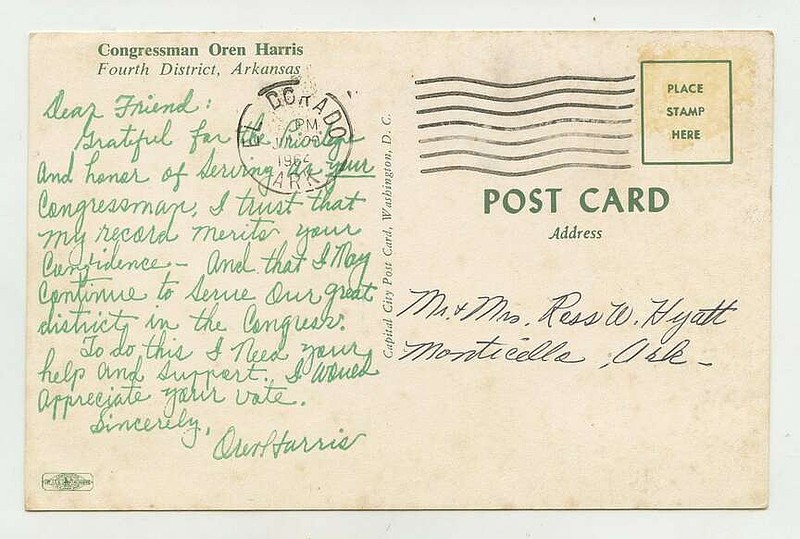 Congressman Oren Harris
Fourth District, Arkansas
Dear Friend:
Grateful for the privilege
and honor of serving as your
Congressman, I trust that
my record merits your
Confidence — And that I May
Continue to serve our great
district in the Congress.
To do this I Need your
help and support. I would
Appreciate your vote.
Sincerely,
Oren Harris
EL DORADO
PM
ARK
Capital City Post Card, Washington, D. C.
PLACE
STAMP
HERE
POST CARD
Address
Mr. & Mrs. Ross W. Hyatt
Monticello, Ark —